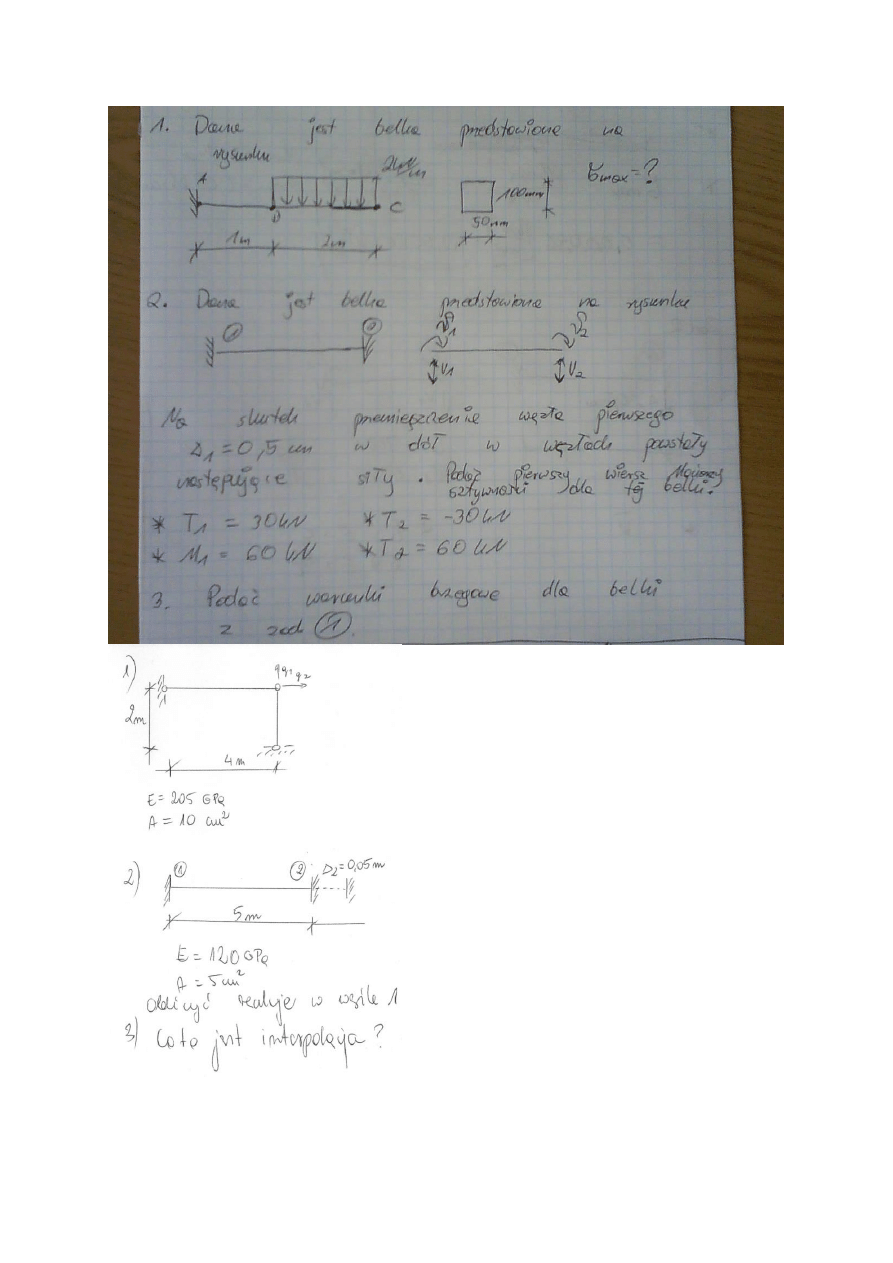 1. Dana jest belka przedstawiona na
rysunku
A
2kN/m
B
C
100mm
50mm
σmax = ?
1m
2m
2. Dana jest belka przedstawiona na rysunku
1
2
φ1
φ2
V1
V2
Na skutek przemieszczenia węzła pierwszego
Δ1 = 0,5 cm w dół w węzłach powstały
następujące siły. Podać pierwszy wiersz Macierzy
sztywności dla tej belki?
* T1 = 30kN * T2 = -30kN
* M1 = 60 kN * T2 = 60 kN
3. Podać warunki brzegowe dla belki
z zad 1.
1)
q2
1
2m
4m
E = 205 GPa
A = 10 cm²
2)
1
2
Δ2 = 0,05m
5m
E = 120 GPa
A = 5cm²
Obliczyć reakcje w węźle 1
3) Co to jest interpolacja?